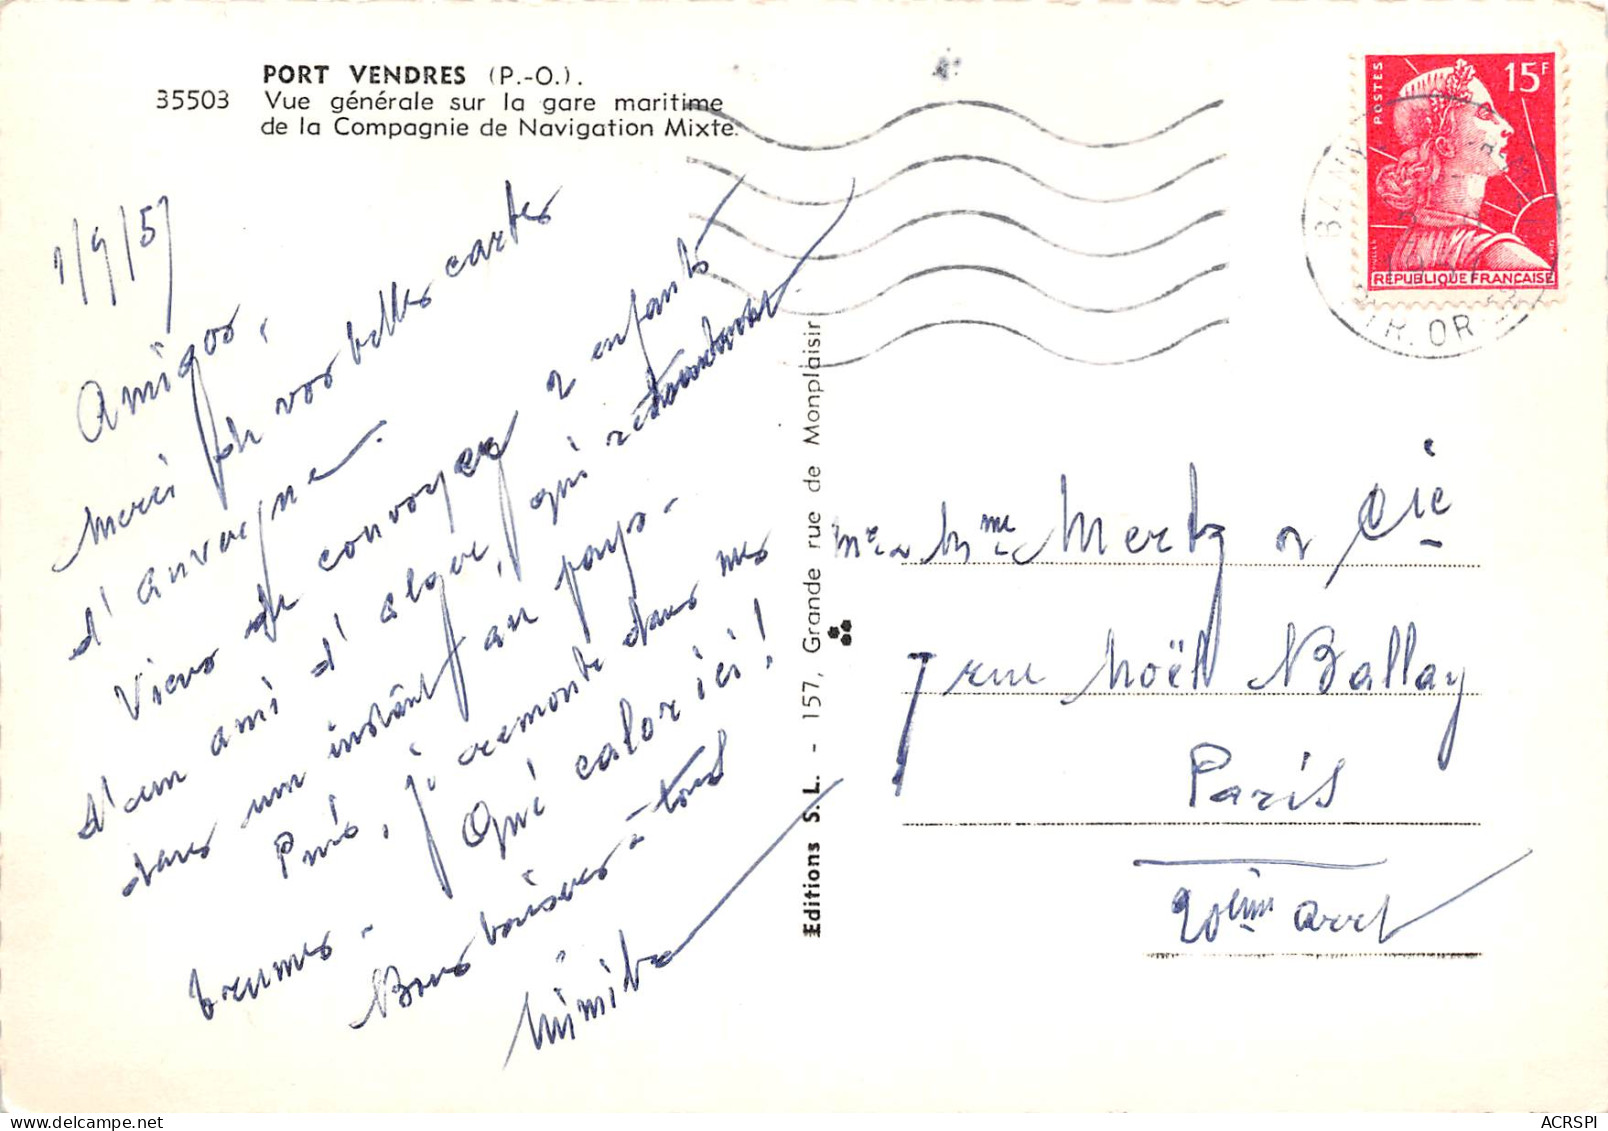 PORT VENDRES (P.-O.).
35503 Vue générale sur la gare maritime
de la Compagnie de Navigation Mixte.
1/9/57
Amigos,
Merci de vos belles cartes
d'auvergne.
Viens de convoyer 2 enfants
d'un ami d'alger, qui retournaient
dans un instant au pays-
Puis, je remonte dans mes
brumes-
Qué calor ici!
Bons baisers à tous
Mimito
Editions S. L. - 157, Grande rue de Monplaisir
POSTES
15F
RÉPUBLIQUE FRANÇAISE
Mr & Mme Mertz & Cie
7 rue Noël Ballay
Paris
20ième arrt
ACRSPI